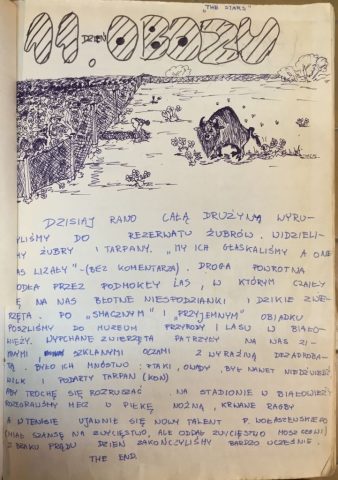 "THE STARS"
11. DZIEŃ OBOZU
DZISIAJ RANO CAŁĄ DRUŻYNĄ WYRU-
YLIŚMY DO REZERWATU ŻUBRÓW. WIDZIELI-
MY ŻUBRY I TARPANY. "MY ICH GŁASKALIŚMY A ONE
AS LIZAŁY" - (BEZ KOMENTARZA). DROGA POWROTNA
ODŁA PRZEZ PODMOKŁY LAS, W KTÓRYM CZAIŁY
Ę NA NAS BŁOTNE NIESPODZIANKI I DZIKIE ZWIE-
RZĘTA. PO "SMACZNYM" I "PRZYJEMNYM" OBIADKU
POSZLIŚMY DO MUZEUM PRZYRODY I LASU W BIAŁO-
WIEŻY. WYPCHANE ZWIERZĘTA PATRZYŁY NA NAS ZI-
MNYMI, SZKLANYMI OCZAMI Z WYRAŹNĄ DEZAPROBA-
TĄ. BYŁO ICH MNÓSTWO: PTAKI, OWADY, BYŁ NAWET NIEDŹWIEDŹ
WILK I PODARTY TARPAN (KOŃ)
ABY TROCHĘ SIĘ ROZRUSZAĆ NA STADIONIE W BIAŁOWIEŻY
ROZEGRALIŚMY MECZ W PIŁKĘ NOŻNĄ, KRWAWE RAGBY
A W TENISIE UJAWNIŁ SIĘ NOWY TALENT P. WOŁASZEWSKIEGO
(MIAŁ SZANSĘ NA ZWYCIĘSTWO, ALE ODDAŁ ZWYCIĘSTWO
Z BRAKU PRĄDU DZIEŃ ZAKOŃCZYLIŚMY BARDZO WCZEŚNIE.
THE END.